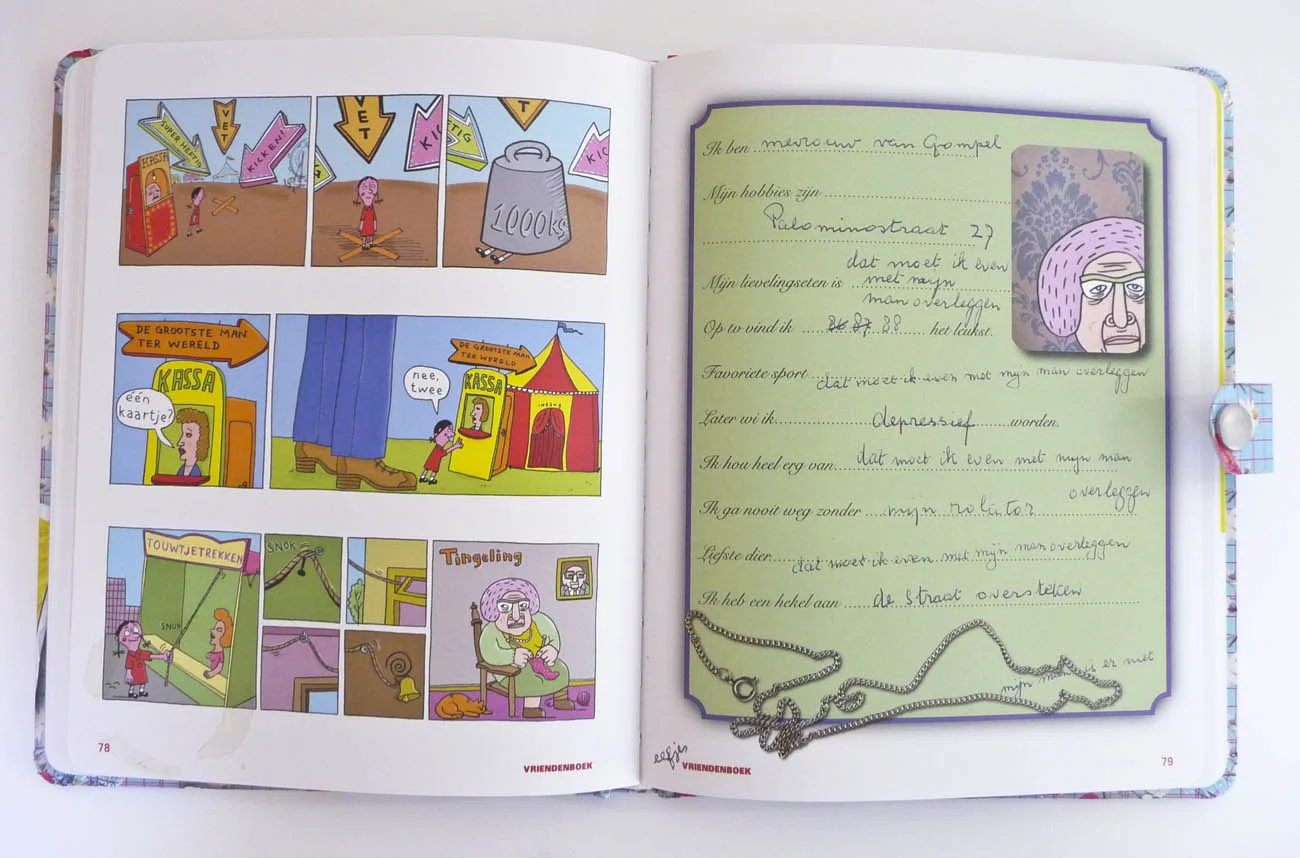 SUPER HEFTIG
VET
KICKEN!
KASSA
VET
KIC
G
TIG
T
KIC
1000KG
DE GROOTSTE MAN
TER WERELD
KASSA
één
kaartje?
DE GROOTSTE MAN
TER WERELD
KASSA
nee,
twee
INGANG
TOUWTJETREKKEN
SNUK
SNOK
Tingeling
78
VRIENDENBOEK
Ik ben mevrouw van Gompel
Mijn hobbies zijn
Palominostraat 27
dat moet ik even
Mijn lievelingseten is met mijn
man overleggen
Op tv vind ik 86 87 88 het leukst.
Favoriete sport dat moet ik even met mijn man overleggen
Later wil ik depressief worden.
Ik hou heel erg van dat moet ik even met mijn man
overleggen
Ik ga nooit weg zonder mijn rolator
Liefste dier dat moet ik even met mijn man overleggen
Ik heb een hekel aan de straat oversteken
mijn man is er niet
eefjes
VRIENDENBOEK
79